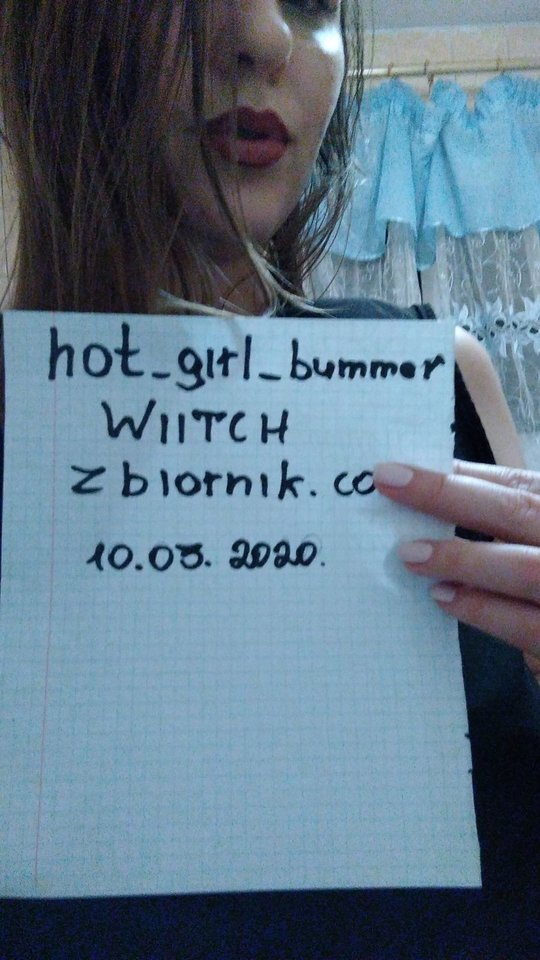 hot_girl_bummer
WIITCH
zbiornik.co
10.03.2020.